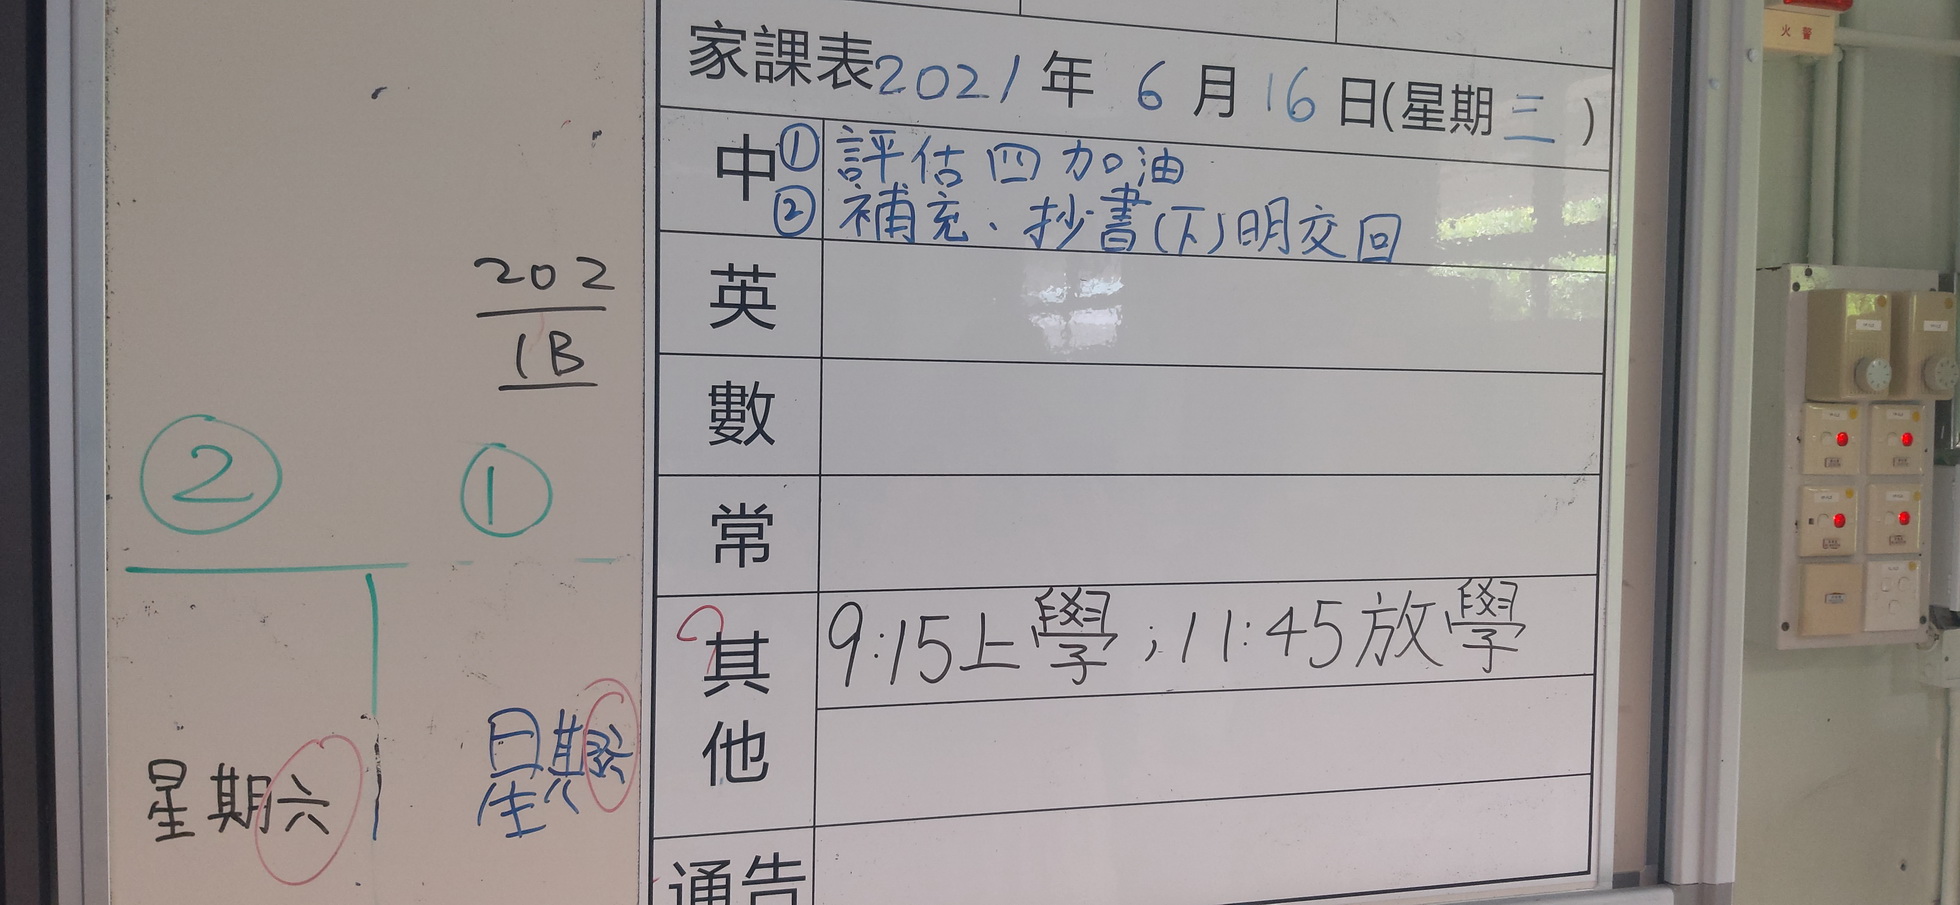 家課表2021年 6月16日(星期三)
中 ① 評估四加油
② 補充、抄書(下)明交回
英
數
常
其他 9:15上學;11:45放學
通告
202
1B
② ①
星期六
星期
火警